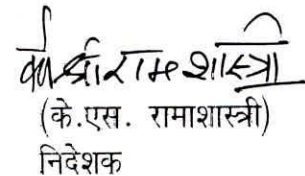 के.श्रीरामशास्त्री
(के.एस. रामाशास्त्री)
निदेशक